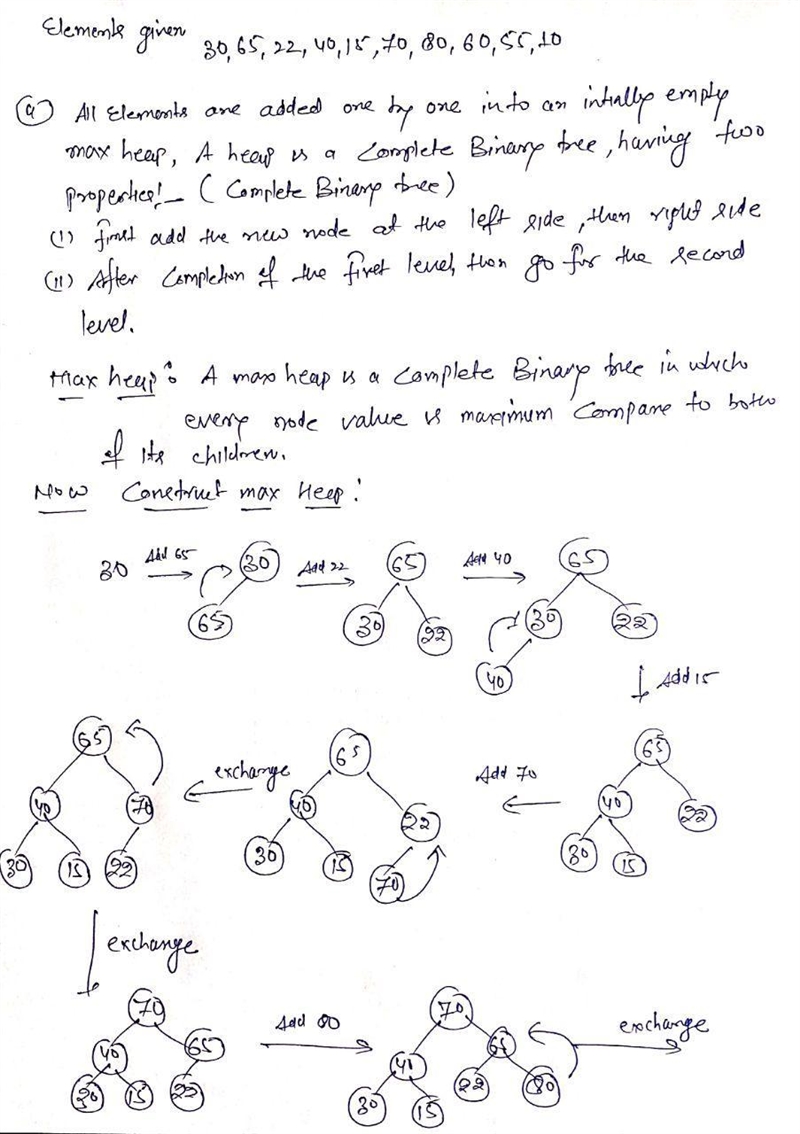 Elements given
30, 65, 22, 40, 15, 70, 80, 60, 55, 10
(a) All Elements are added one by one into an intially empty
max heap, A heap is a Complete Binary tree, having two
properties:- (Complete Binary tree)
(i) first add the new node at the left side, then right side
(ii) After Completion of the first level, then go for the second
level.
Max heap: A max heap is a Complete Binary tree in which
every node value is maximum Compare to both
of its children.
Now Construct max Heep:
30 Add 65 30 Add 22 65 Add 40 65
65 30 22 30 22
40
Add 15
65 exchange 65 Add 70 65
40 70 40 22 40 22
30 15 22 30 15 70 30 15
exchange
70 Add 80 70 exchange
40 65 40 65
30 15 22 30 15 22 80